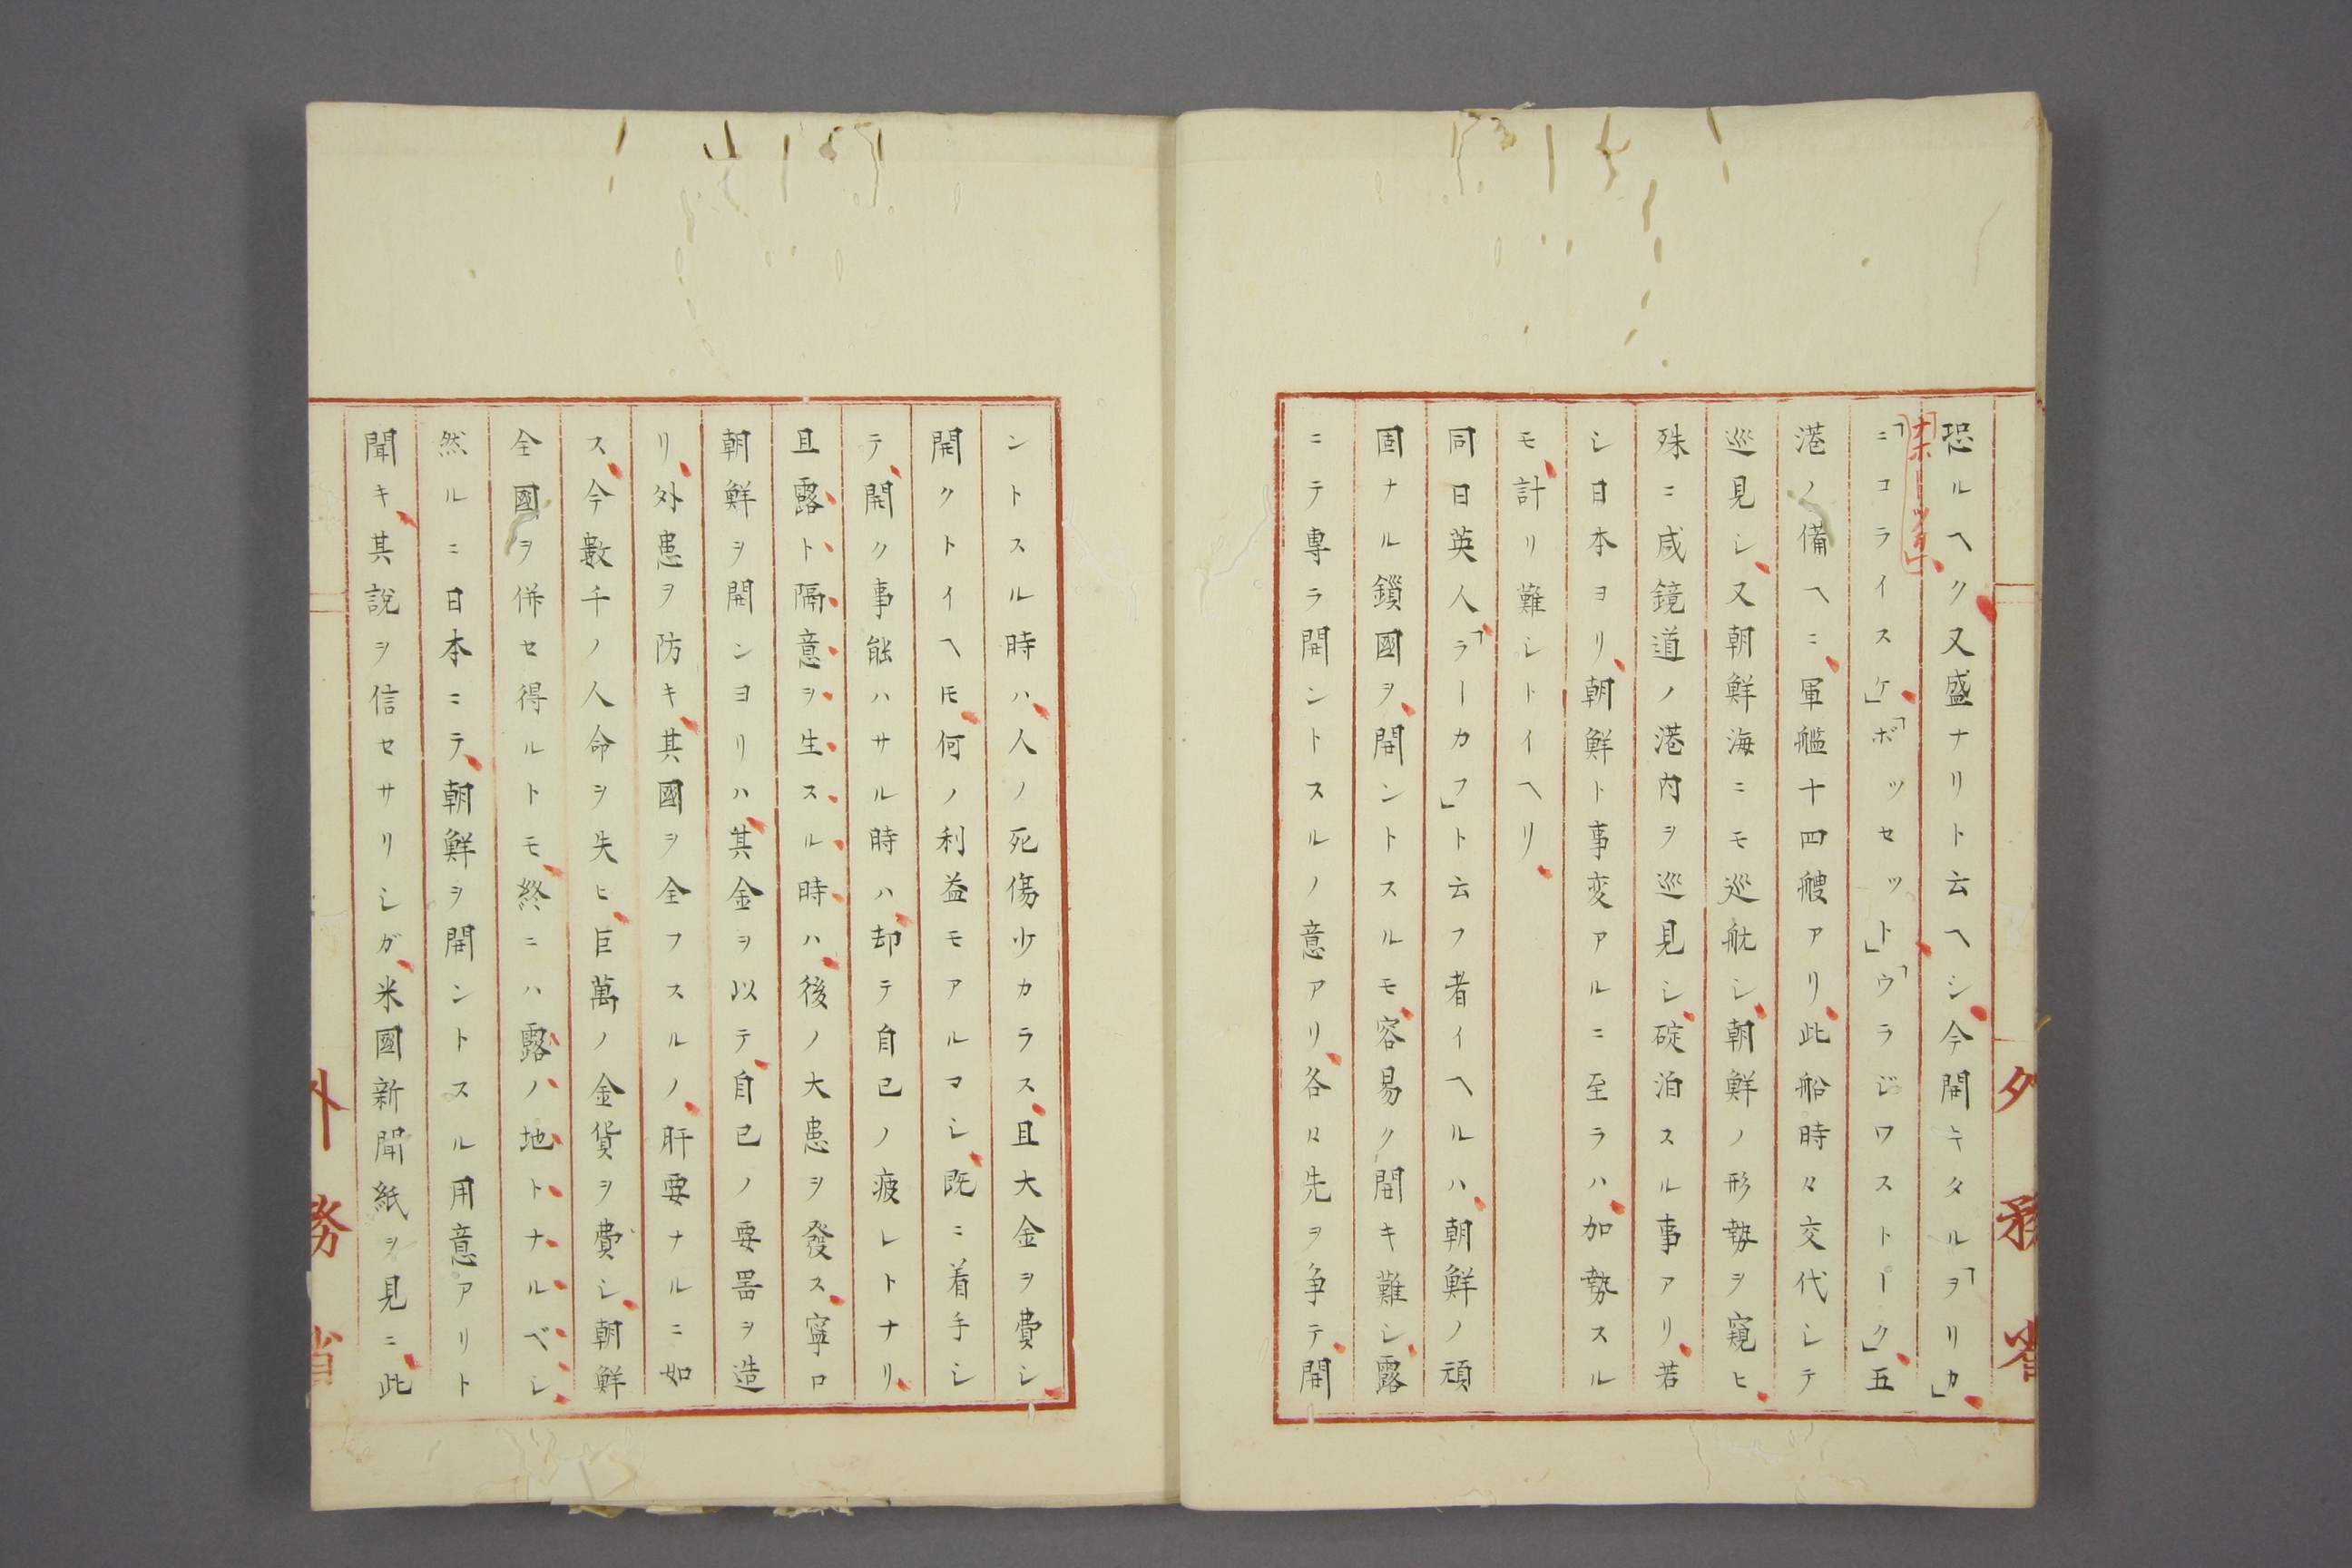 恐ルヘク又盛ナリト云ヘシ今開キタル「ヲリカ」
「ナホーツカ」
「ニコライスケ」「ボツセツト」「ウラジワストーク」五
港ノ備ヘニ軍艦十四艘アリ此船時々交代シテ
巡見シ又朝鮮海ニモ巡航シ朝鮮ノ形勢ヲ窺ヒ
殊ニ咸鏡道ノ港内ヲ巡見シ碇泊スル事アリ若
シ日本ヨリ朝鮮ト事変アルニ至ラハ加勢スル
モ計リ難シトイヘリ
同日英人「ラーカフ」ト云フ者イヘルハ朝鮮ノ頑
固ナル鎖國ヲ開ントスルモ容易ク開キ難シ露
ニテ専ラ開ントスルノ意アリ各々先ヲ争テ開
外務省
ントスル時ハ人ノ死傷少カラス且大金ヲ費シ
開クトイヘ𪜈何ノ利益モアルマシ既ニ着手シ
テ開ク事能ハサル時ハ却テ自己ノ疲レトナリ
且露ト隔意ヲ生スル時ハ後ノ大患ヲ發ス寧ロ
朝鮮ヲ開ンヨリハ其金ヲ以テ自己ノ要器ヲ造
リ外患ヲ防キ其國ヲ全フスルノ肝要ナルニ如
ス今數千ノ人命ヲ失ヒ巨萬ノ金貨ヲ費シ朝鮮
全國ヲ併セ得ルトモ終ニハ露ノ地トナルベシ
然ルニ日本ニテ朝鮮ヲ開ントスル用意アリト
聞キ其説ヲ信セサリシガ米國新聞紙ヲ見ニ此
外務省